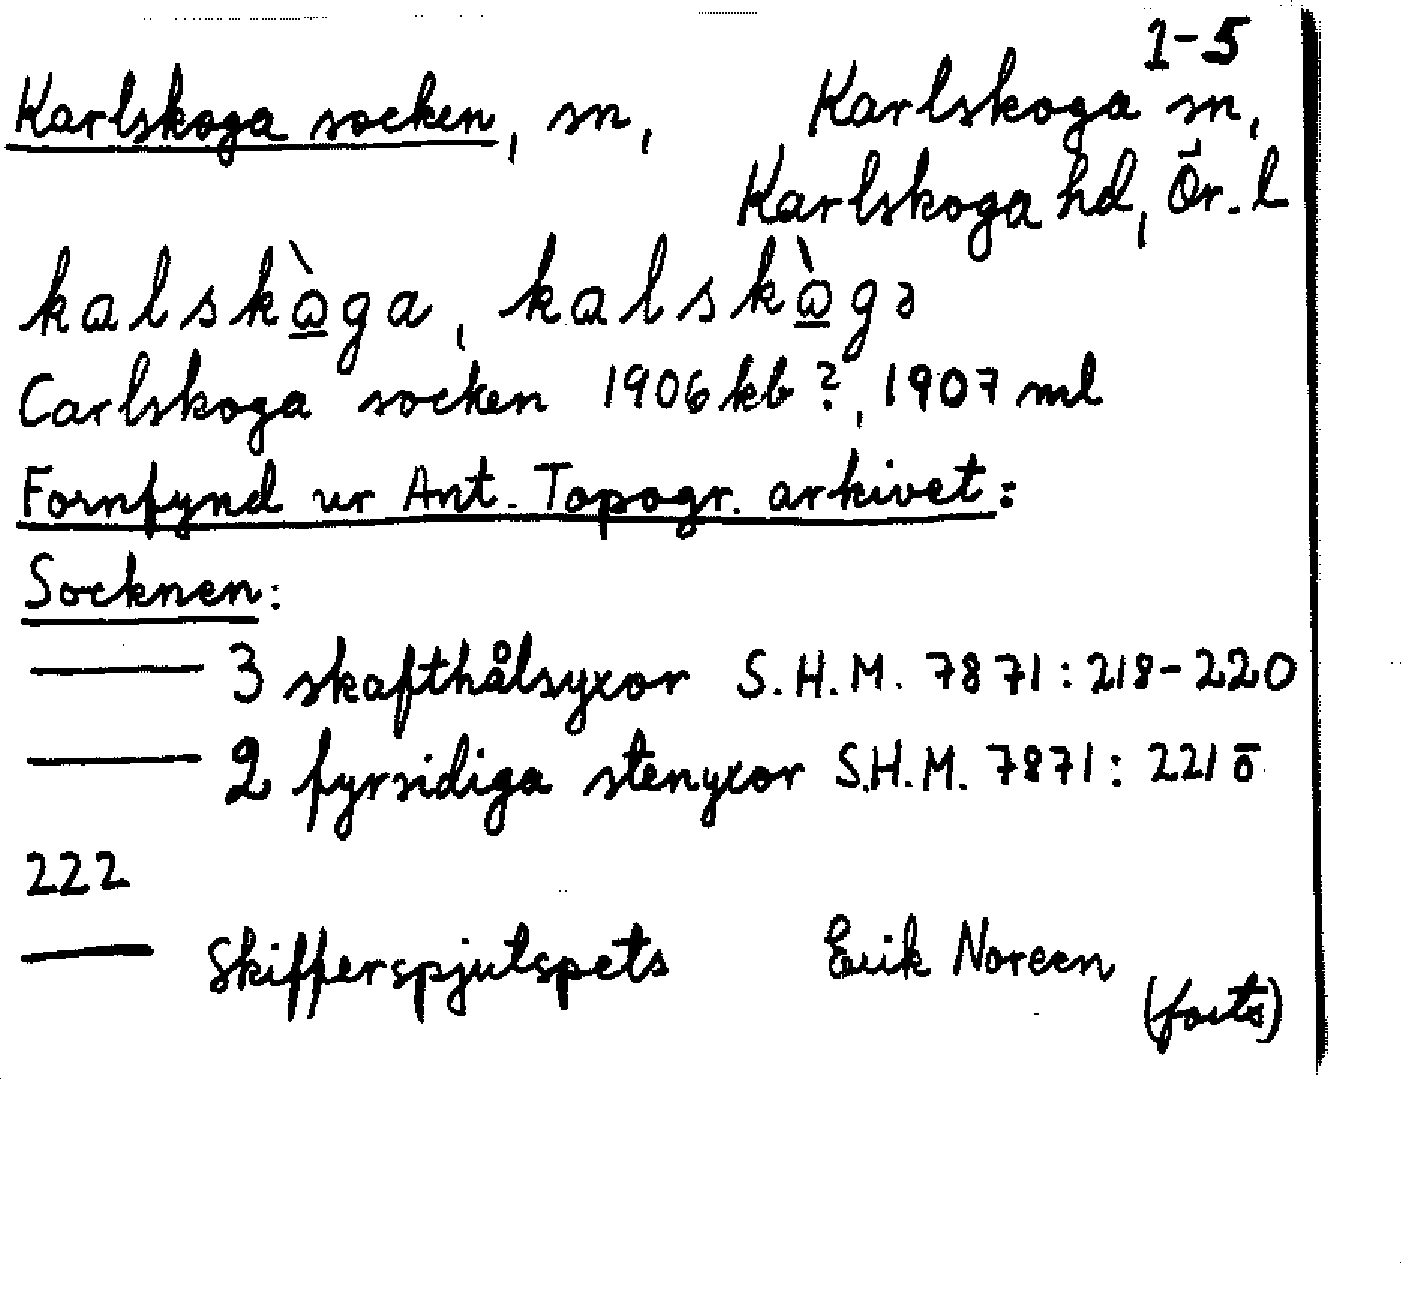 1-5
Karlskoga socken, sn, Karlskoga sn,
Karlskoga hd, Ör. l
kalskò̲ga, kalskò̲gə
Carlskoga socken 1906 kb ?, 1907 ml
Fornfynd ur Ant. Topogr. arkivet:
Socknen:
—— 3 skafthålsyxor S.H.M. 7871:218-220
—— 2 fyrsidiga stenyxor S.H.M. 7871: 221 ō
222
—— Skifferspjutspets Erik Noreen
(forts)